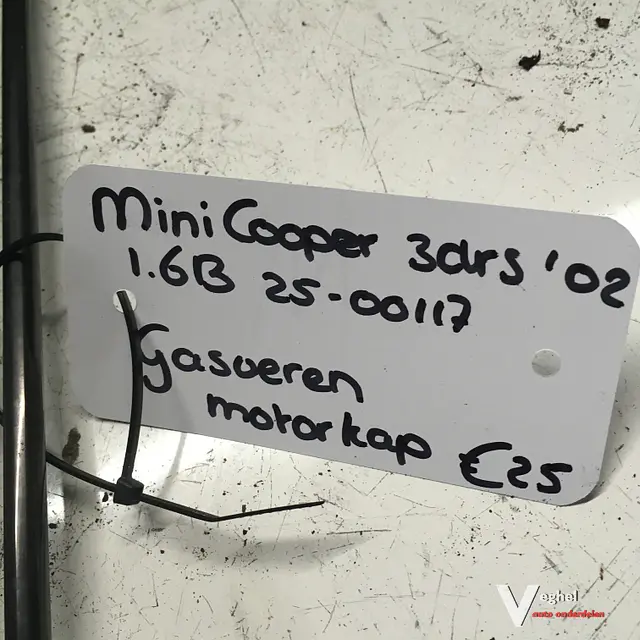 Mini Cooper 3drs '02
1.6B 25-00117
Gasveren
motorkap €25
Veghel
auto onderdelen